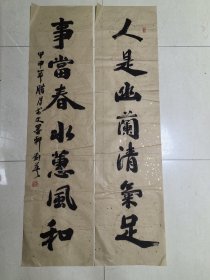 人是幽蘭清氣足
事當春水蕙風和
甲申年腊月書